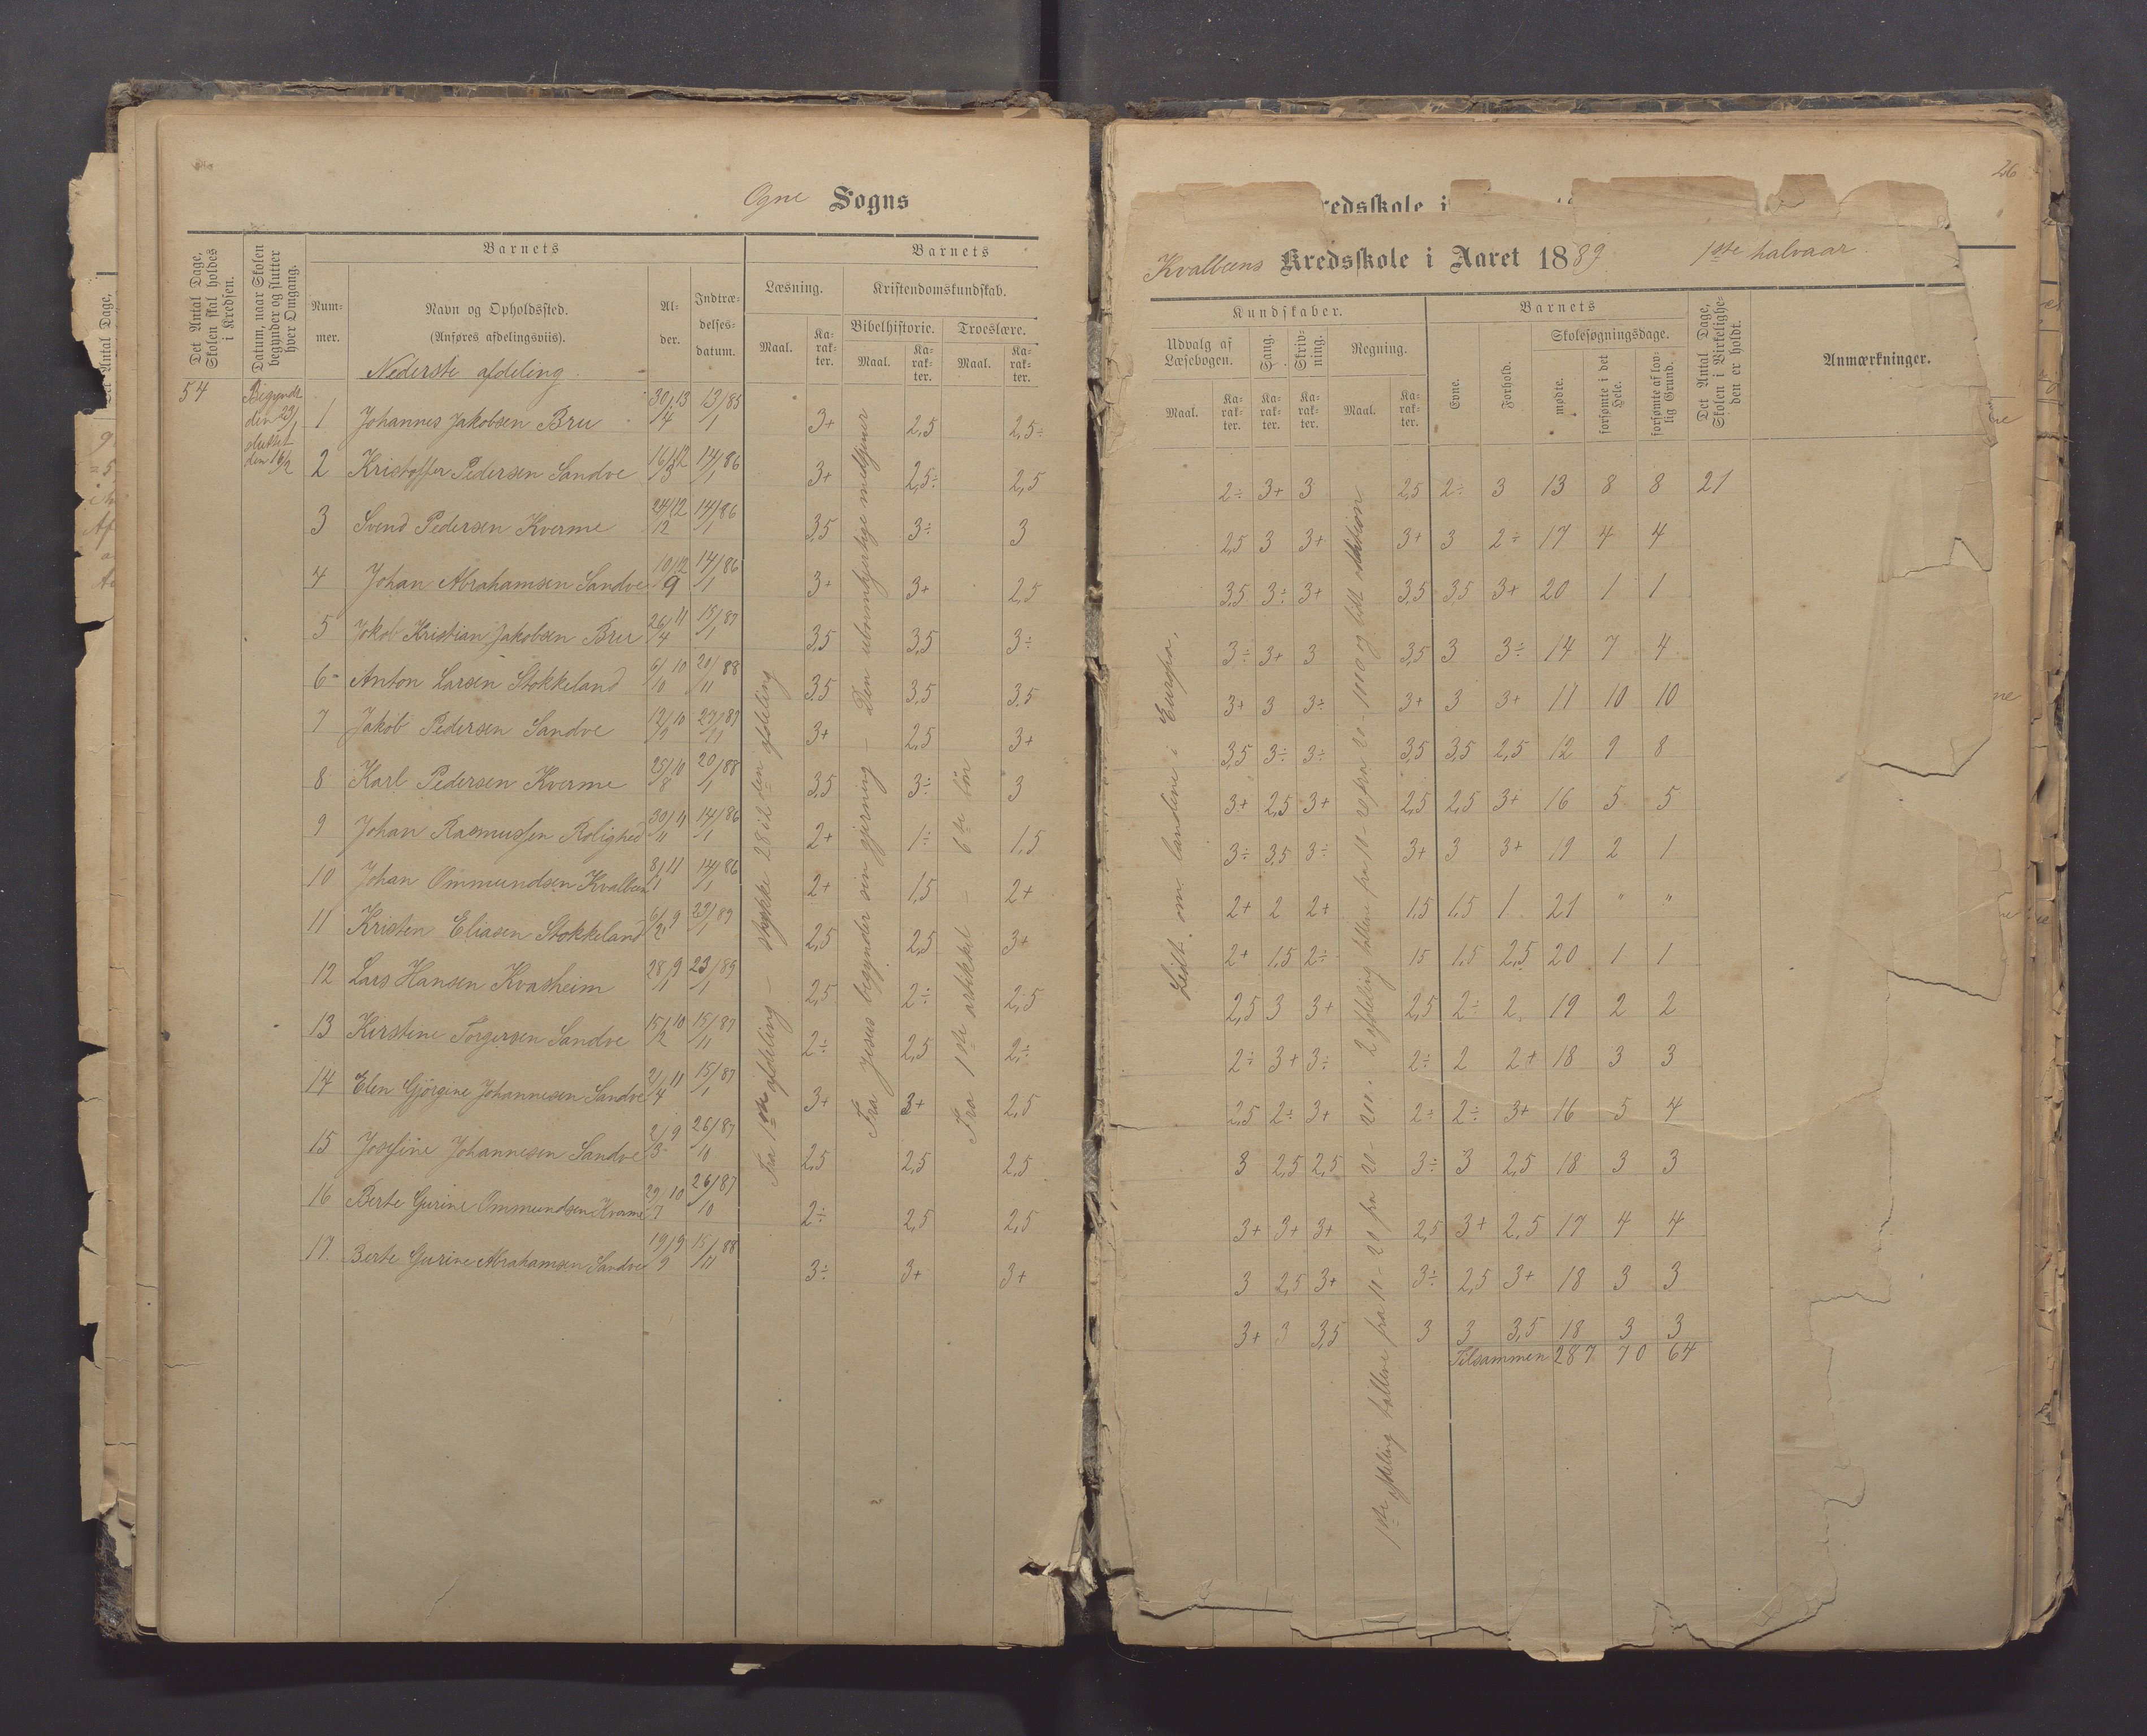 Ogne Sogns
Det Antal Dage, Skolen skal holdes i Kredsen.
Datum, naar Skolen begynder og slutter hver Omgang.
Barnets
Barnets
Nummer.
Navn og Opholdssted.
(Anføres afdelingsviis).
Alder.
Indtrædelsesdatum.
Læsning.
Kristendomskundskab.
Bibelhistorie.
Troeslære.
Maal.
Karakter.
Maal.
Karakter.
Maal.
Karakter.
Nederste afdeling.
54
Begyndt den 23/1 sluttet den 16/2
1 Johannes Jakobsen Bru 30/4 13 13/1 85 3+ 2,5 2,5÷
2 Kristoffer Pedersen Sandve 16/3 12 14/1 86 3+ 2,5÷ 2,5
3 Svend Pedersen Kverme 24/12 12 14/1 86 3,5 3÷ 3
4 Johan Abrahamsen Sandve 10/9 12 14/1 86 3+ 3+ 2,5
5 Jokob Kristian Jakobsen Bru 26/4 11 15/1 87 3,5 3,5 3÷
6 Anton Larsen Stokkeland 6/10 10 20/11 88 3,5 3,5 3,5
7 Jakob Pedersen Sandve 12/9 10 27/11 87 3+ 2,5 3+
8 Karl Pedersen Kverme 25/8 10 20/1 88 3,5 3÷ 3
9 Johan Rasmussen Rolighed 30/11 11 14/1 86 2+ 1÷ 1,5
10 Johan Ommundsen Kvalbein 8/1 11 14/1 86 2+ 1,5 2+
11 Kristen Eliasen Stokkeland 6/2 9 23/1 89 2,5 2,5 3+
12 Lars Hansen Kvasheim 28/1 9 23/1 89 2,5 2÷ 2,5
13 Kirstine Torgersen Sandve 15/12 10 15/11 87 2÷ 2,5 2÷
14 Elen Gjörgine Johannesen Sandve 21/4 11 15/1 87 3+ 3+ 2,5
15 Josefine Johannesen Sandve 2/3 9 26/10 87 2,5 2,5 2,5
16 Berte Gurine Ommundsen Kverme 29/7 10 26/10 87 2÷ 2,5 2,5
17. Berte Gurine Abrahamsen Sandve 19/9 9 15/11 88 3÷ 3+ 3+
Fra 1ste afdeling – stykke 28 i 2den afdeling
Fra Jesus begynder sin gjerning – Den ubarmhjertige medtjener
Fra 1ste artikkel – 6te bön
26
redsskole i
Kvalbeins Kredsskole i Aaret 1889 1ste halvaar
Kundskaber.
Barnets
Udvalg af Læsebogen.
Sang.
Skrivning.
Regning.
Evne.
Forhold.
Skolesøgningsdage.
mødte.
forsømte i det Hele.
forsømte af lovlig Grund.
Det Antal Dage, Skolen i Virkeligheden er holdt.
Anmærkninger.
Maal.
Karakter.
Karakter.
Karakter.
Maal.
Karakter.
2÷ 3+ 3 2,5 2÷ 3 13 8 8 21
2,5 3 3+ 3+ 3 2÷ 17 4 4
3,5 3÷ 3+ 3,5 3,5 3+ 20 1 1
3÷ 3+ 3 3,5 3 3÷ 14 7 4
3+ 3 3÷ 3+ 3 3+ 11 10 10
3,5 3÷ 3÷ 3,5 3,5 2,5 12 9 8
3+ 2,5 3+ 2,5 2,5 3+ 16 5 5
3÷ 3,5 3÷ 3+ 3 3+ 19 2 1
2+ 2 2+ 1,5 1,5 1 21 " "
2+ 1,5 2÷ 15 1,5 2,5 20 1 1
2,5 3 3+ 2,5 2÷ 2 19 2 2
2÷ 3+ 3÷ 2÷ 2 2+ 18 3 3
2,5 2÷ 3+ 2÷ 2÷ 3+ 16 5 4
3 2,5 2,5 3÷ 3 2,5 18 3 3
3+ 3+ 3+ 2,5 3+ 2,5 17 4 4
3 2,5 3+ 3÷ 2,5 3+ 18 3 3
3+ 3 3,5 3 3 3,5 18 3 3
Tilsammen 287 70 64
Lidt om landene i Europa,
1ste afdeling tallene fra 10 – 20 fra 20 – 200. 2 afdeling tallene fra 10 – 20 fra 20 – 1000 og lidt addition